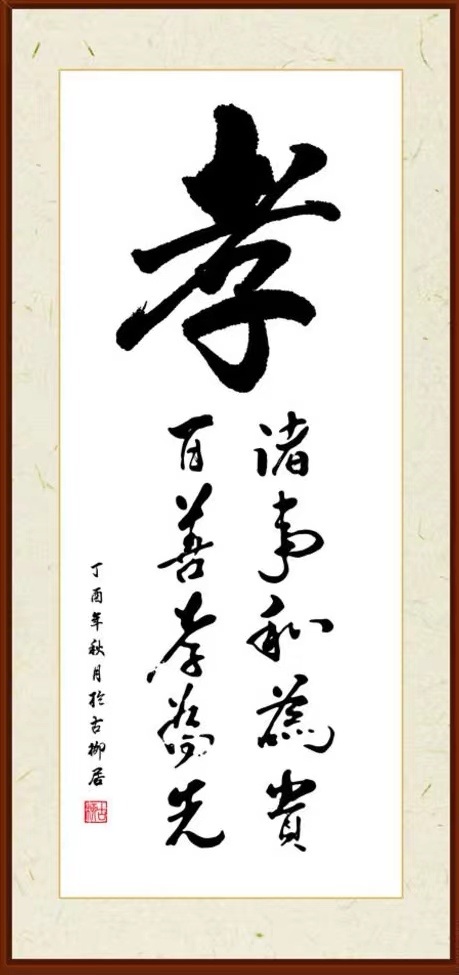 孝
诸事和為貴
百善孝為先
丁酉年秋月於古柳居